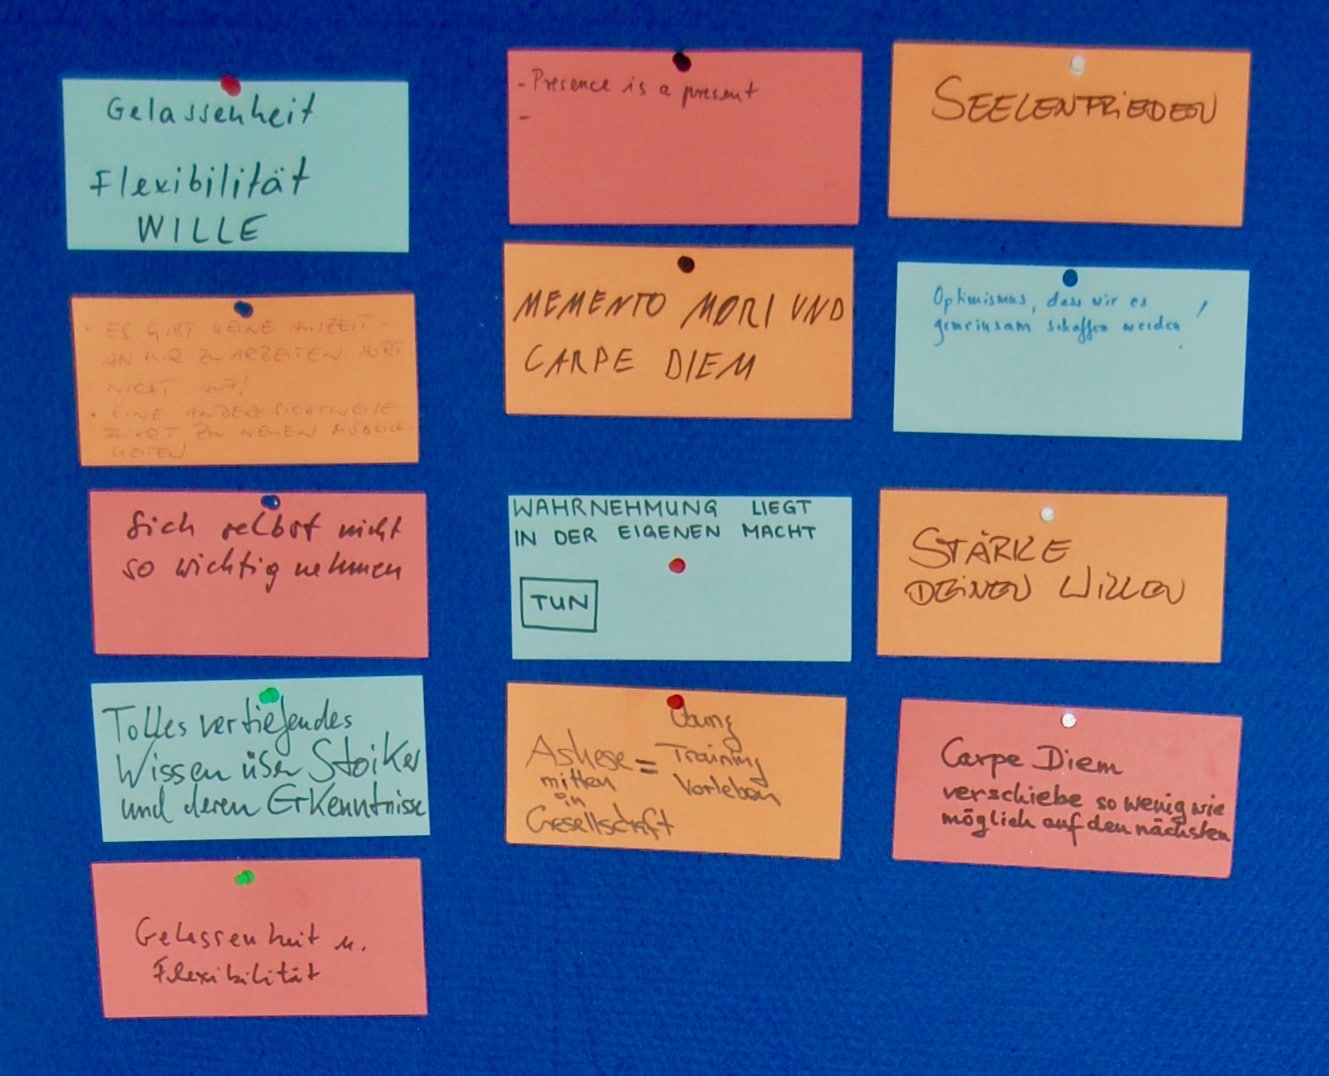 Gelassenheit
Flexibilität
WILLE
• ES GIBT KEINE AUSZEIT -
AN MIR ZU ARBEITEN HÖRT
NICHT AUF!
• EINE ANDERE SICHTWEISE
FÜHRT ZU NEUEN MÖGLICH-
KEITEN
Sich selbst nicht
so wichtig nehmen
Tolles vertiefendes
Wissen über Stoiker
und deren Erkenntnisse
Gelassenheit u.
Flexibilität
- Presence is a present
-
MEMENTO MORI UND
CARPE DIEM
WAHRNEHMUNG LIEGT
IN DER EIGENEN MACHT
TUN
Übung
Askese = Training
mitten Vorleben
in
Gesellschaft
SEELENFRIEDEN
Optimismus, dass wir es
gemeinsam schaffen werden!
STÄRKE
DEINEN WILLEN
Carpe Diem
verschiebe so wenig wie
möglich auf den nächsten